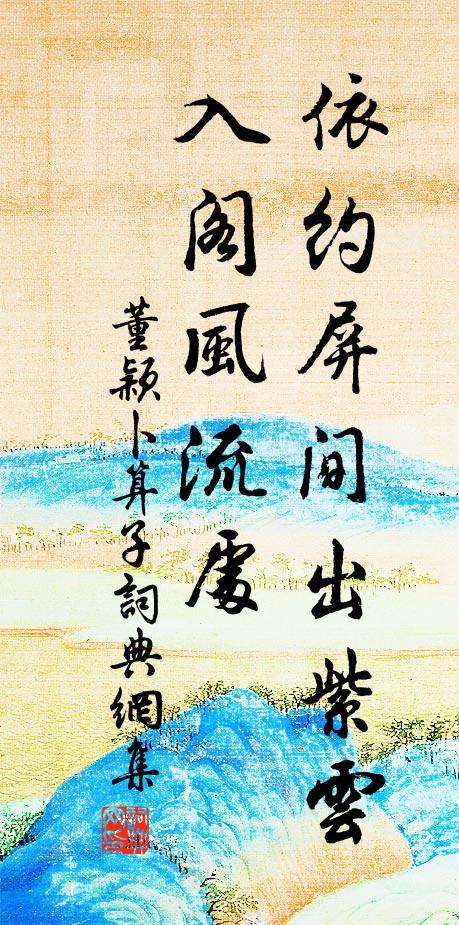 依約屏間出紫雲
入閣風流處
董穎卜算子詞典網集